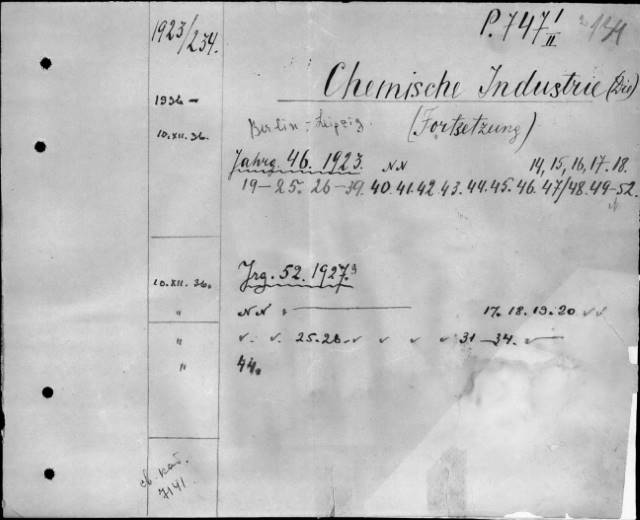 1923/234.
P. 747 I/II
Chemische Industrie (Die)
1936 –
10.XII.36.
Berlin – Leipzig.
(Fortsetzung)
Jahrg. 46. 1923. NN 14, 15, 16, 17 - 18.
19 – 25. 26 – 39. 40. 41. 42 43. 44. 45. 46. 47/48. 49 – 52.
10.XII.36. Jrg. 52. 1927.
" NN 17. 18. 19 - 20 ✓ ✓
" ✓ ✓ 25. 26 ✓ ✓ ✓ ✓ 31 – 34. ✓
" 44.
7141